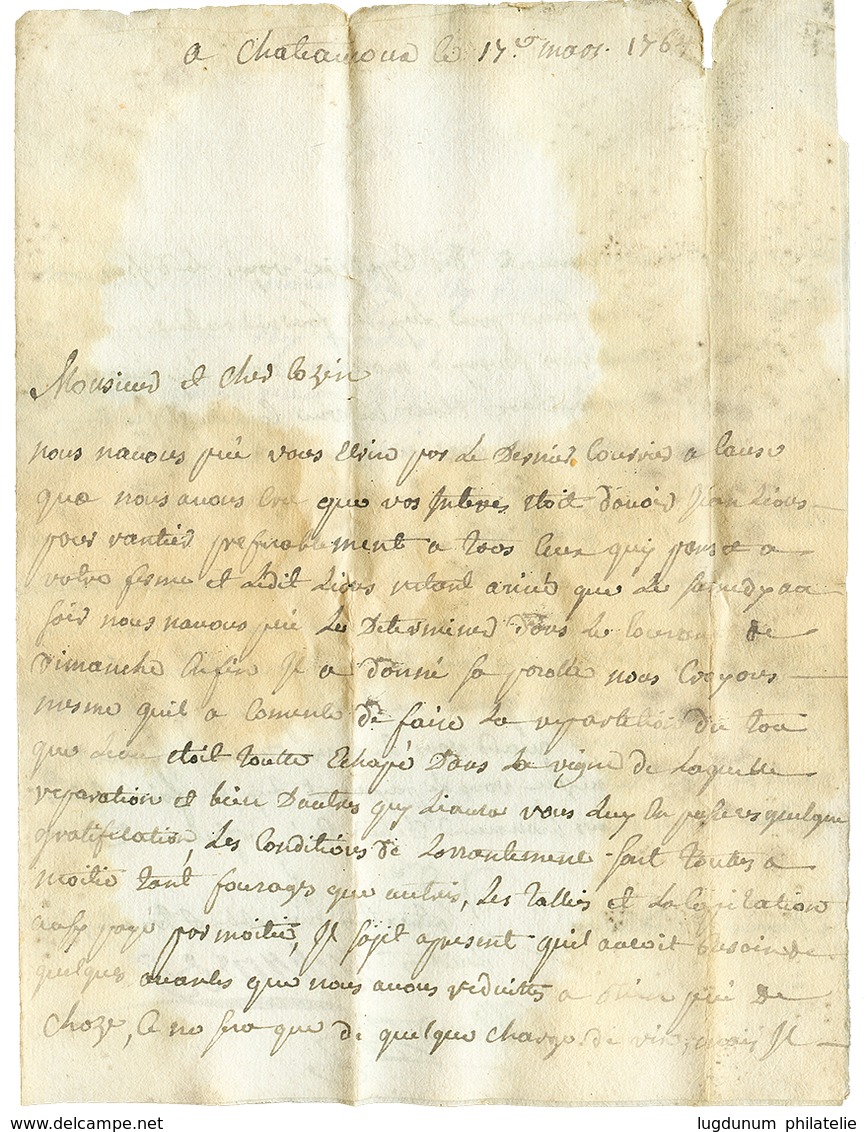 a le 17e mars 176
Monsieur et cher Cozin
nous navons peü vous Ecrire par Le Dernier Courrier a Cause
que nous avons Cru que vos Interes etoit davoir Jean Lious
pour rantier preferablement a tous Ceux quy
votre ferme et Ledit Lious netant arivé que Le samedy au
soir nous navons peü Le Determiner dans Le Courant de
Dimanche Enfin Il a donné sa parolle nous Croyons
mesme quil a Comencé de faire La reparation du
que Leau etoit toutte Echapé Dans La vigne de Laquelle
reparation et bien Dautres quy Liaura vous Luy En passeres quelque
gratification, Les Conditions de Larrantement sont toutes a
moitié tant fourages que autres, Les Tallies et La Capitation
payé par moitié, Il sajit apresent quil auroit Besoin de
quelques avances que nous avons reduittes a bien peü de
Choze, Ce ne sera que de quelque charge de vin, mais Il
delcampe.net
lugdunum philatelie